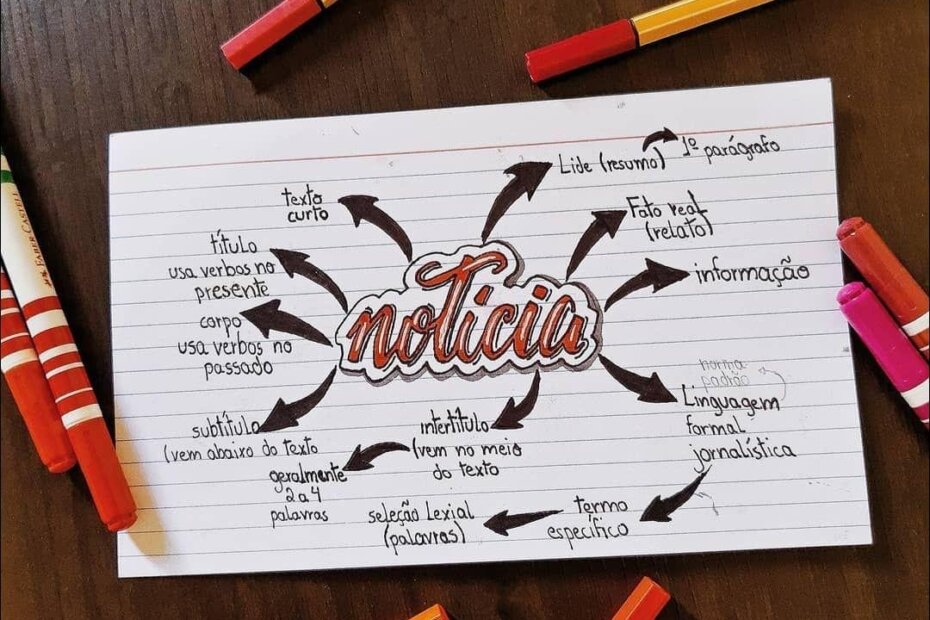 notícia
Lide (resumo)
1º parágrafo
Fato real
(relato)
informação
norma
padrão
Linguagem
formal
jornalística
termo
específico
seleção Lexial
(palavras)
intertítulo
(vem no meio
do texto
geralmente
2 a 4
palavras
subtítulo
(vem abaixo do texto
corpo
usa verbos no
passado
título
usa verbos no
presente
texto
curto
FABER CASTELL